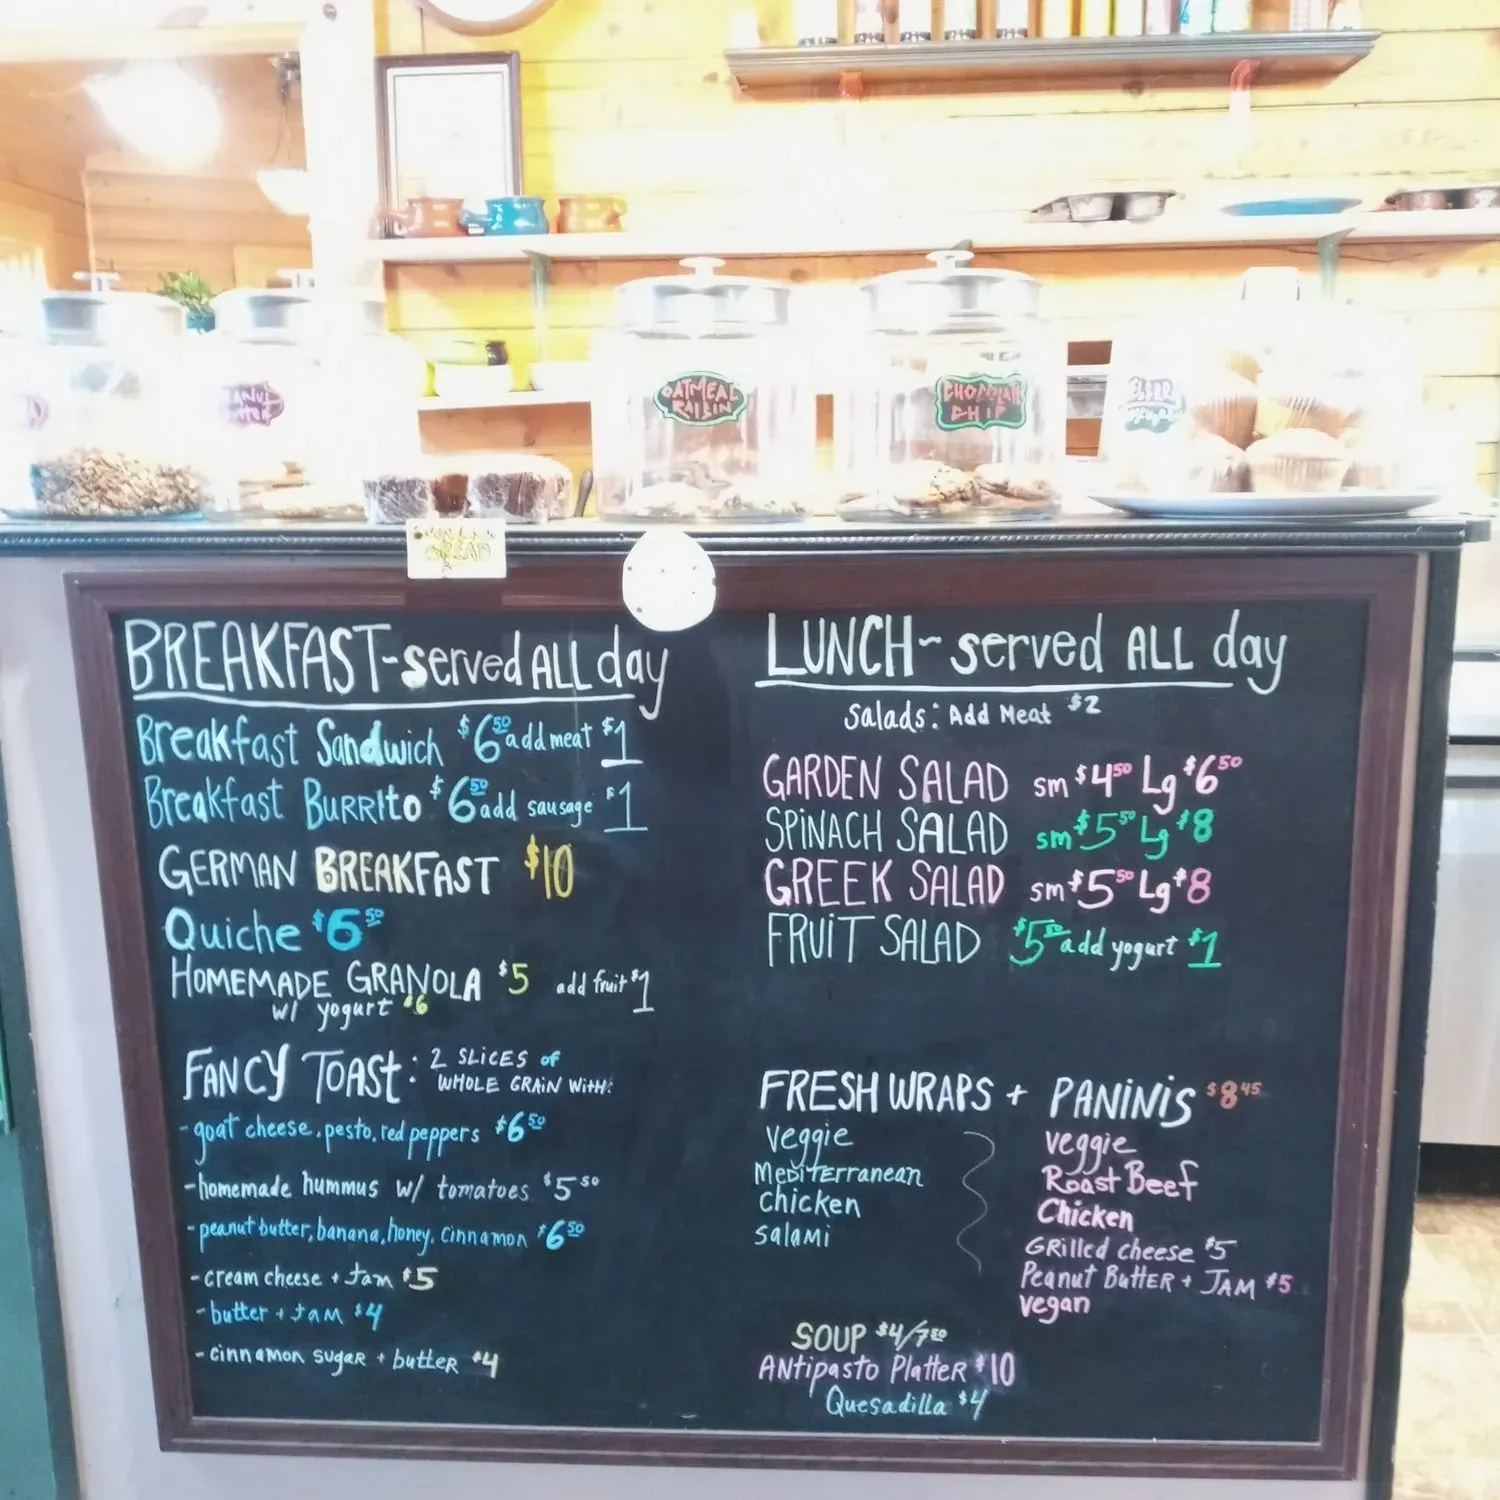 PEANUT
BUTTER
OATMEAL
RAISIN
CHOCOLATE
CHIP
BREAD
BREAKFAST-served ALL day
Breakfast Sandwich $6.50 add meat $1
Breakfast BURRITO $6.50 add sausage $1
GERMAN BREAKFAST $10
Quiche $6.50
HOMEMADE GRANOLA $5 add fruit $1
w/ yogurt $6
FANCY TOAST: 2 SLICES of
WHOLE GRAIN WITH:
- goat cheese, pesto, red peppers $6.50
- homemade hummus w/ tomatoes $5.50
- peanut butter, banana, honey, cinnamon $6.50
- cream cheese + Jam $5
- butter + JAM $4
- cinnamon sugar + butter $4
LUNCH~served ALL day
Salads: Add Meat $2
GARDEN SALAD sm $4.50 Lg $6.50
SPINACH SALAD sm $5.50 Lg $8
GREEK SALAD sm $5.50 Lg $8
FRUIT SALAD $5.50 add yogurt $1
FRESH WRAPS + PANINIS $8.45
veggie
MEDITERRanean
Chicken
Salami
veggie
Roast Beef
Chicken
GRilled cheese $5
Peanut Butter + JAM $5
vegan
SOUP $4/7.50
Antipasto Platter $10
Quesadilla $4